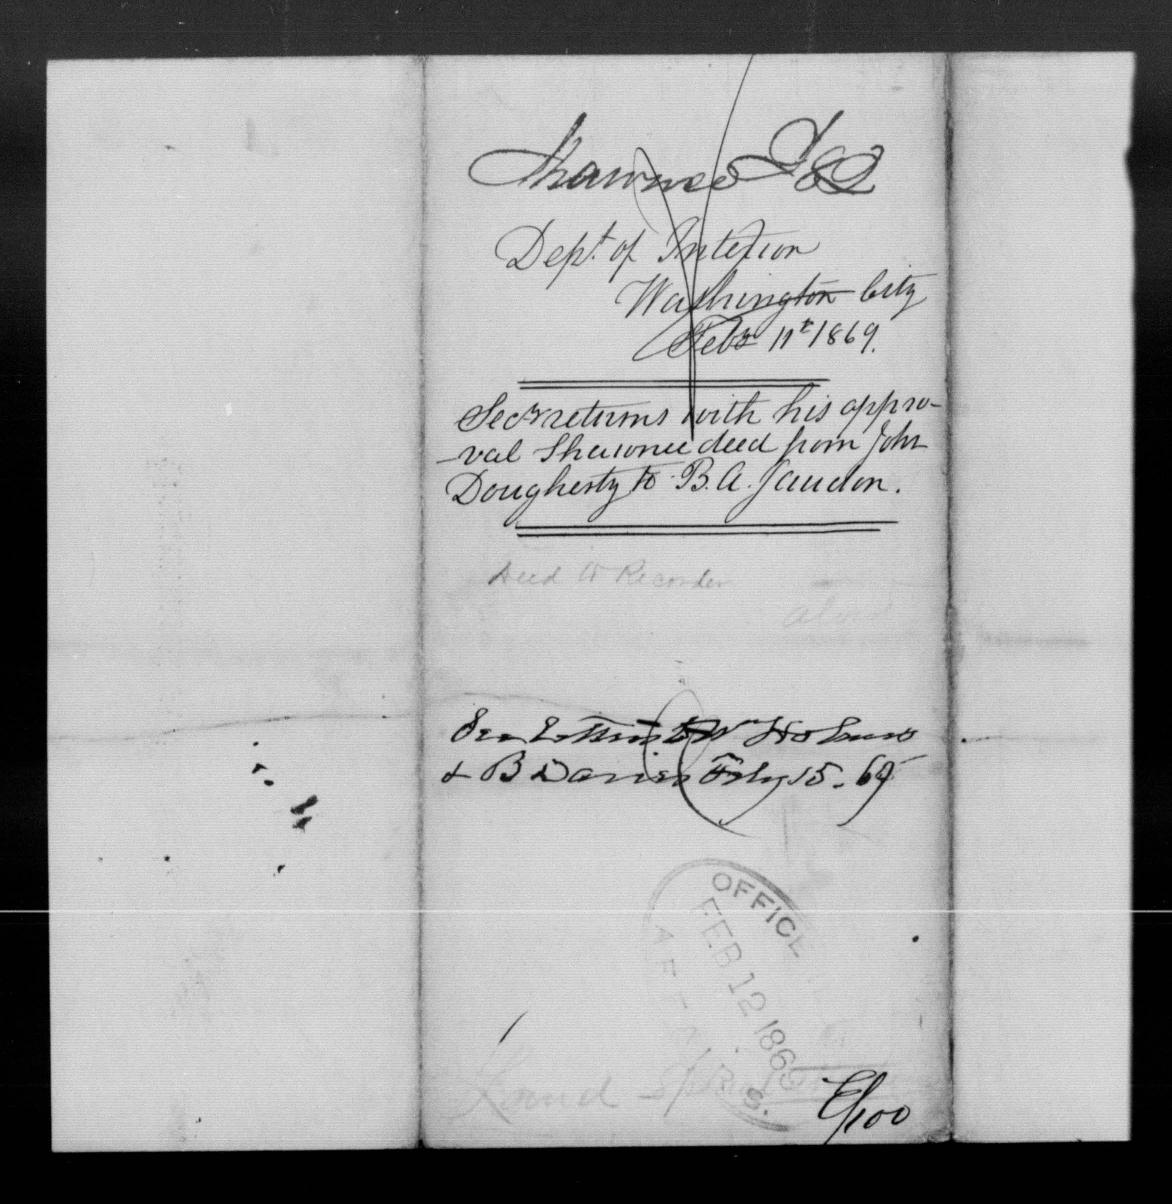 Shawnee
Dept. of Interior
Washington City
Feby 11th 1869.
Secy returns with his appro-
-val Shawnee deed from John
Dougherty to B. A. Jaudon.
Deed to Recorder
See Letters to Wm Holmes
& B Davies Feby 15. 69
OFFICE
FEB 12 1869